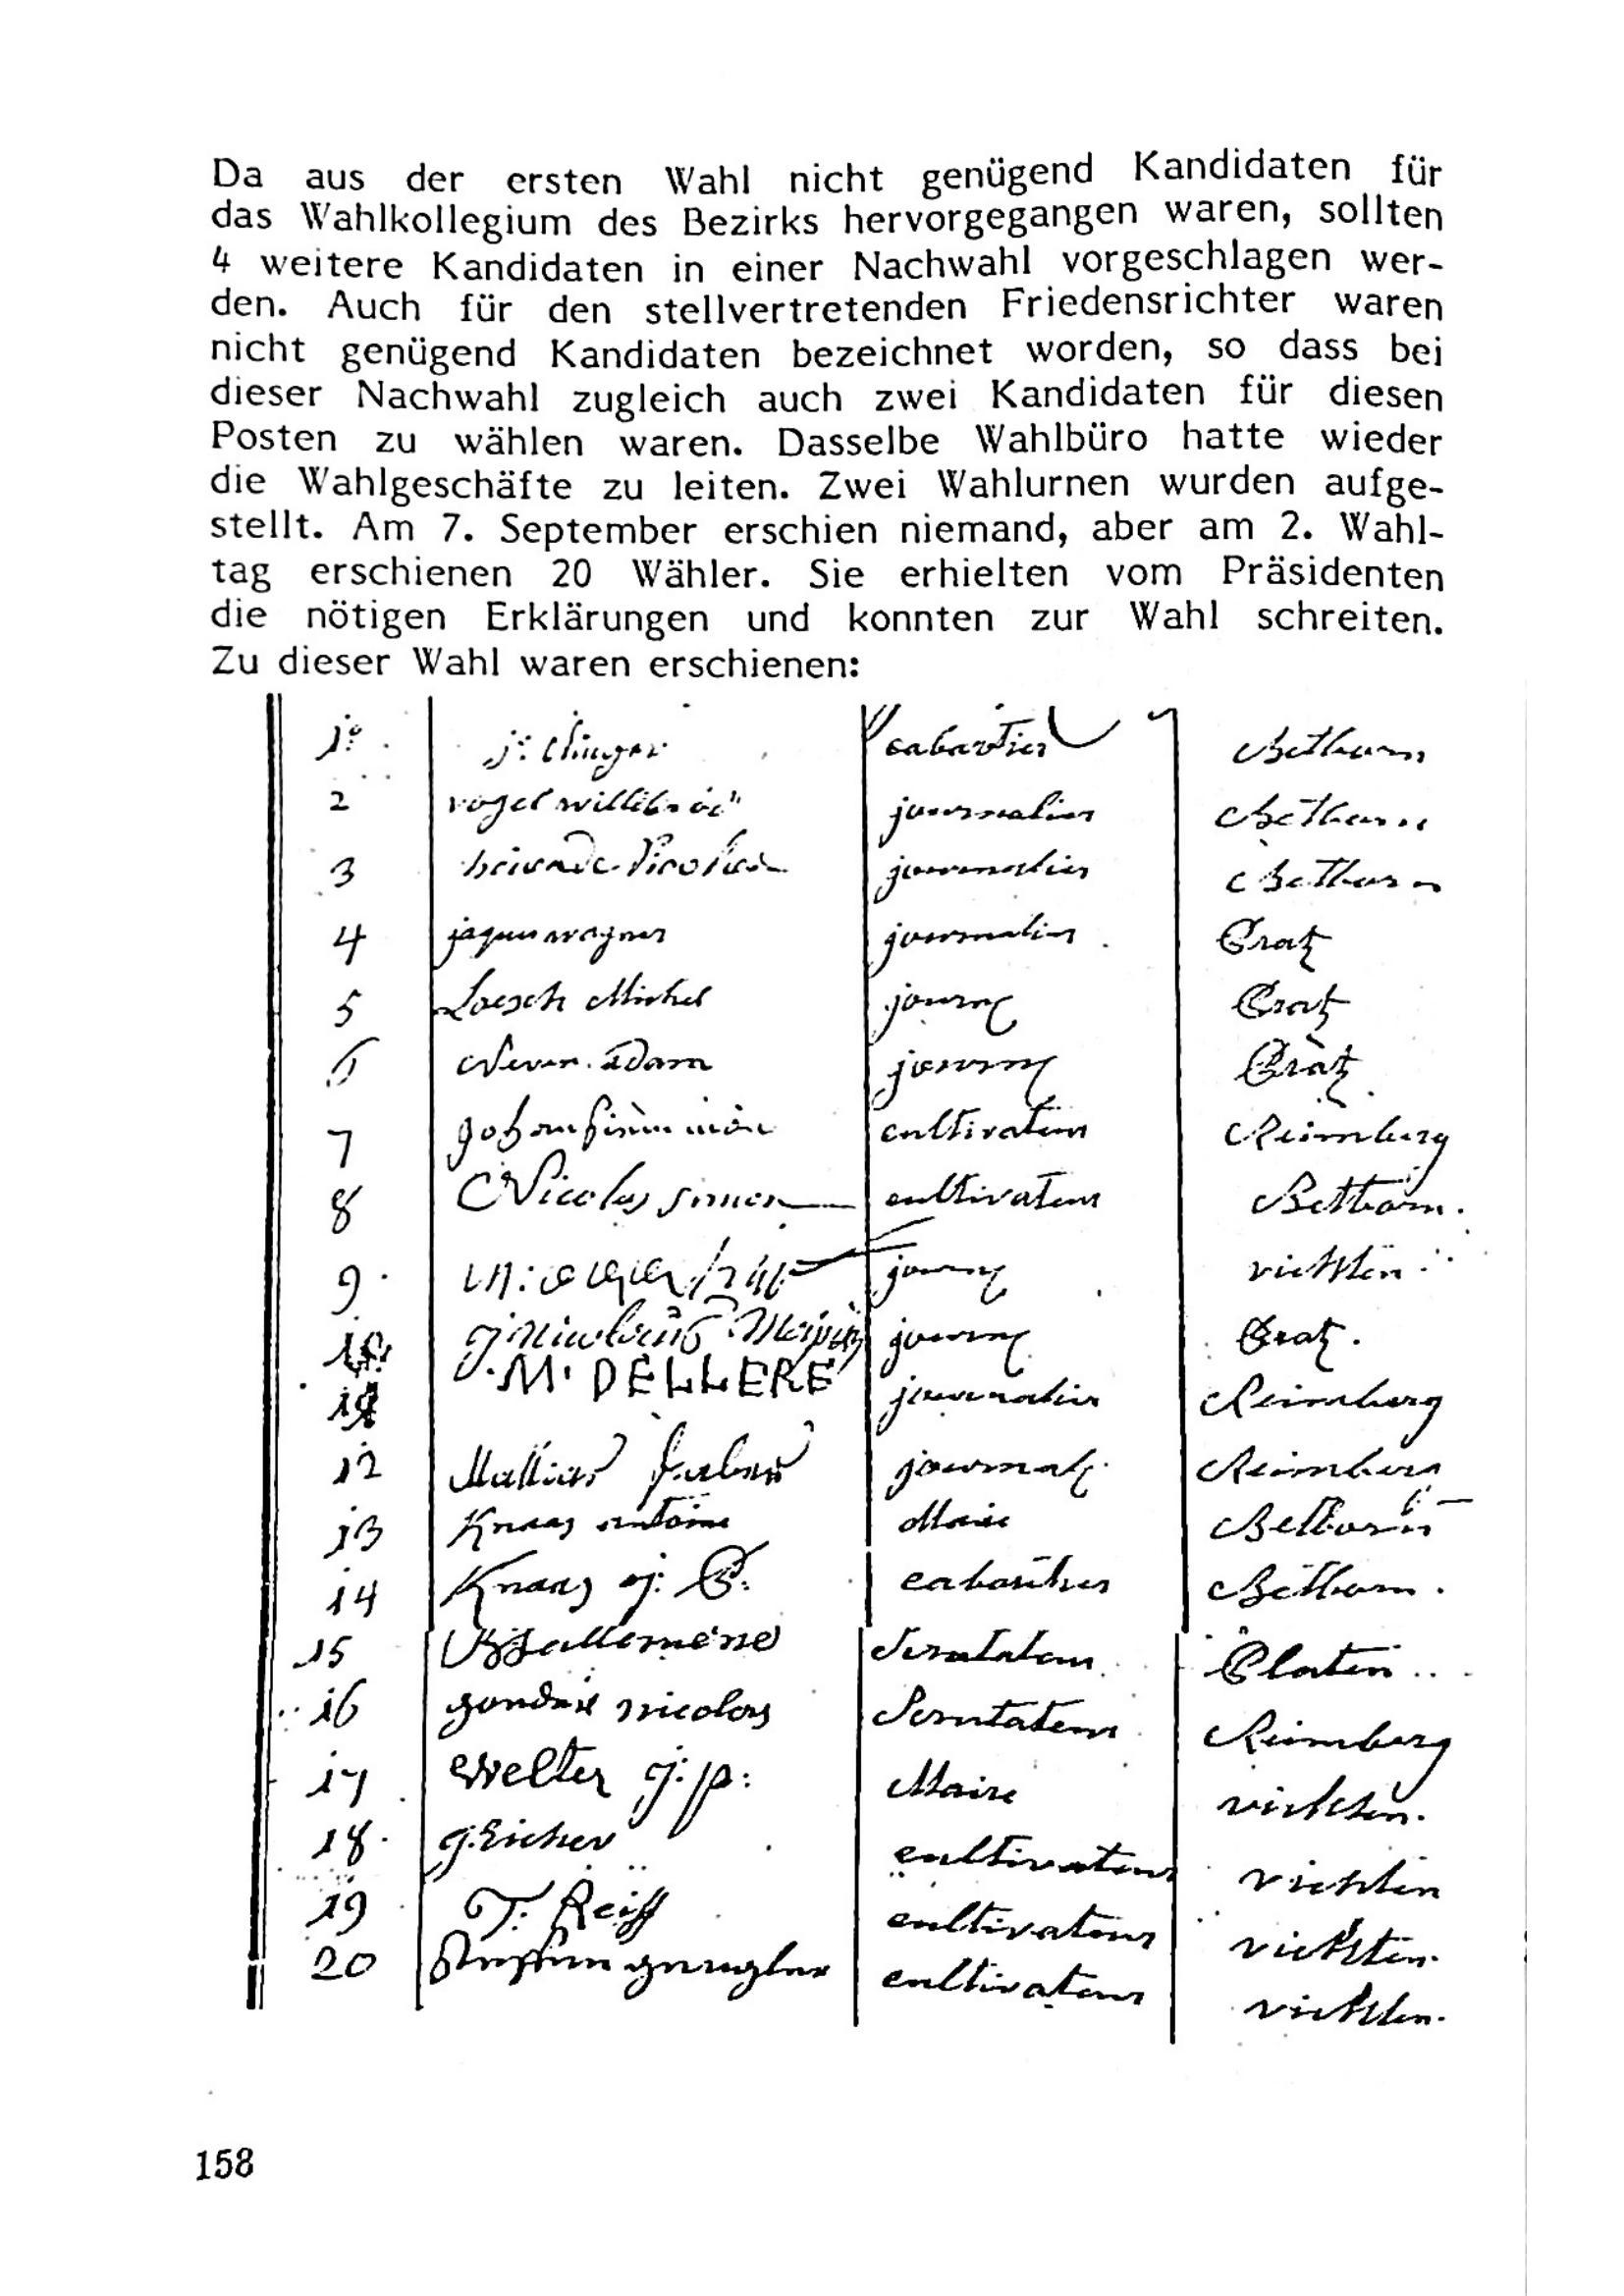 Da aus der ersten Wahl nicht genügend Kandidaten für
das Wahlkollegium des Bezirks hervorgegangen waren, sollten
4 weitere Kandidaten in einer Nachwahl vorgeschlagen wer-
den. Auch für den stellvertretenden Friedensrichter waren
nicht genügend Kandidaten bezeichnet worden, so dass bei
dieser Nachwahl zugleich auch zwei Kandidaten für diesen
Posten zu wählen waren. Dasselbe Wahlbüro hatte wieder
die Wahlgeschäfte zu leiten. Zwei Wahlurnen wurden aufge-
stellt. Am 7. September erschien niemand, aber am 2. Wahl-
tag erschienen 20 Wähler. Sie erhielten vom Präsidenten
die nötigen Erklärungen und konnten zur Wahl schreiten.
Zu dieser Wahl waren erschienen:
1º cabartier Bettborn
2 vogel journalier Bettborn
3 journalier Bettborn
4 wagner journalier Pratz
5 Loesch Michel journ Pratz
6 adam journ Pratz
7 cultivateur Reimberg
8 Nicolas simon cultivateur Bettborn.
9. journ vichten
10 journ Pratz.
11 M. DELLERE journalier Reimberg
12 Mathias faber journal Reimberg
13 Knaas antoine Maire Bettborn
14 Knaas j: P: cabartier Bettborn.
15 Scrutateur Platen
16 nicolas Scrutateur Reimberg
17 Welter j: p: Maire vichten.
18. J. Eicher cultivateur vichten
19 T: Reiff cultivateur vichten.
20 cultivateur vichten.
158